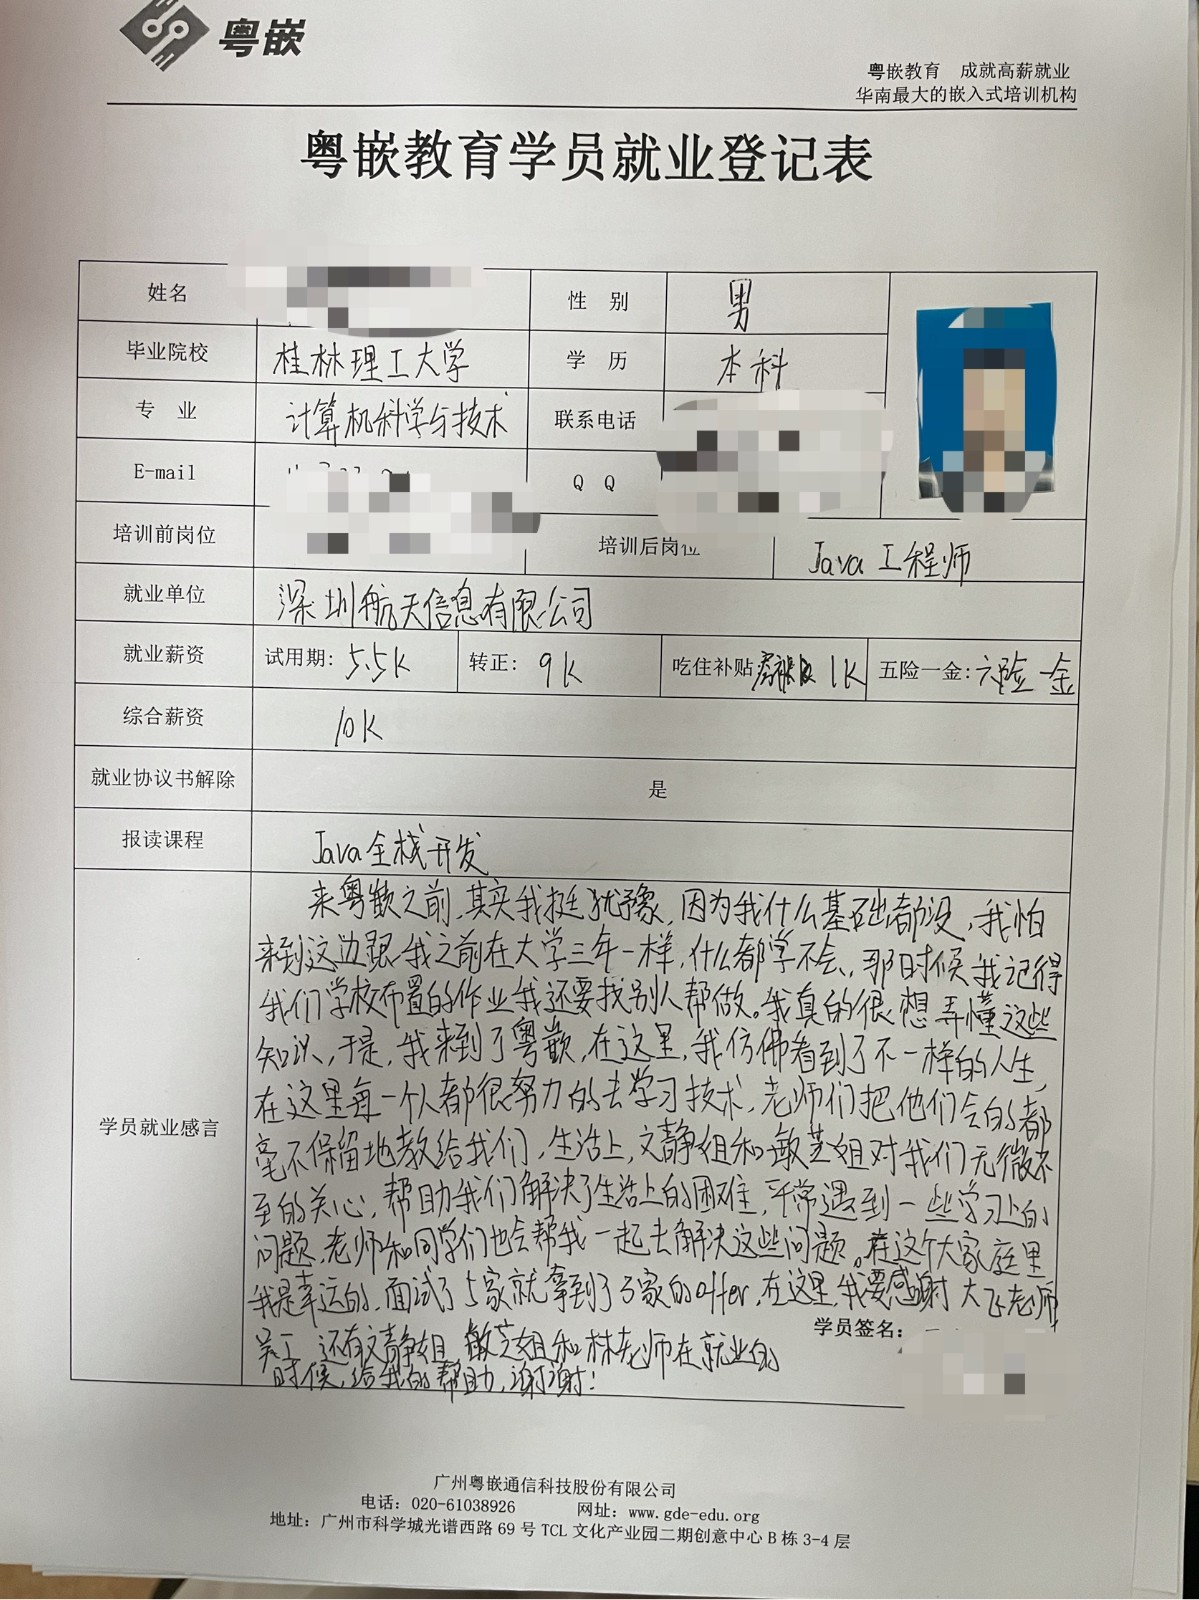 粤嵌
粤嵌教育 成就高薪就业
华南最大的嵌入式培训机构
粤嵌教育学员就业登记表
姓名
性 别 男
毕业院校 桂林理工大学 学 历 本科
专 业 计算机科学与技术 联系电话
E-mail
Q Q
培训前岗位
培训后岗位 Java 工程师
就业单位 深圳航天信息有限公司
就业薪资 试用期: 5.5K 转正: 9K 吃住补贴 1K 五险一金: 六险一金
综合薪资 10K
就业协议书解除 是
报读课程 Java全栈开发
学员就业感言
来粤嵌之前,其实我挺犹豫,因为我什么基础都没,我怕
来到这边跟我之前在大学三年一样,什么都学不会,那时候我记得
我们学校布置的作业我还要找别人帮做。我真的很想弄懂这些
知识,于是,我来到了粤嵌,在这里,我仿佛看到了不一样的人生,
在这里每一个人都很努力的去学习技术,老师们把他们会的都
毫不保留地教给我们,生活上,文静姐和敏芝姐对我们无微不
至的关心,帮助我们解决了生活上的困难,平常遇到一些学习上的
问题,老师和同学们也会帮我一起去解决这些问题。在这个大家庭里
我是幸运的,面试了5家就拿到了3家的offer,在这里,我要感谢大飞老师
吴工,还有文静姐,敏芝姐和林老师在就业的
时候,给我的帮助,谢谢!
学员签名:
广州粤嵌通信科技股份有限公司
电话: 020-61038926 网址: www.gde-edu.org
地址: 广州市科学城光谱西路 69 号 TCL 文化产业园二期创意中心 B 栋 3-4 层